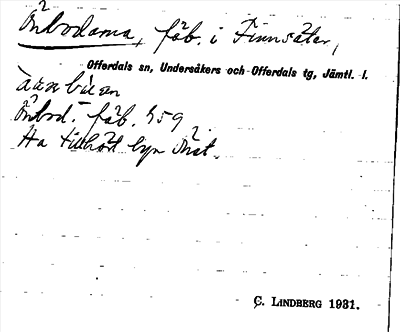 Önbodarna, fäb. i Finnsäter,
Offerdals sn, Undersåkers och Offerdals tg, Jämtl. l.
Önbod. fäb. 459
Ha tillhört byn
C. LINDBERG 1931.